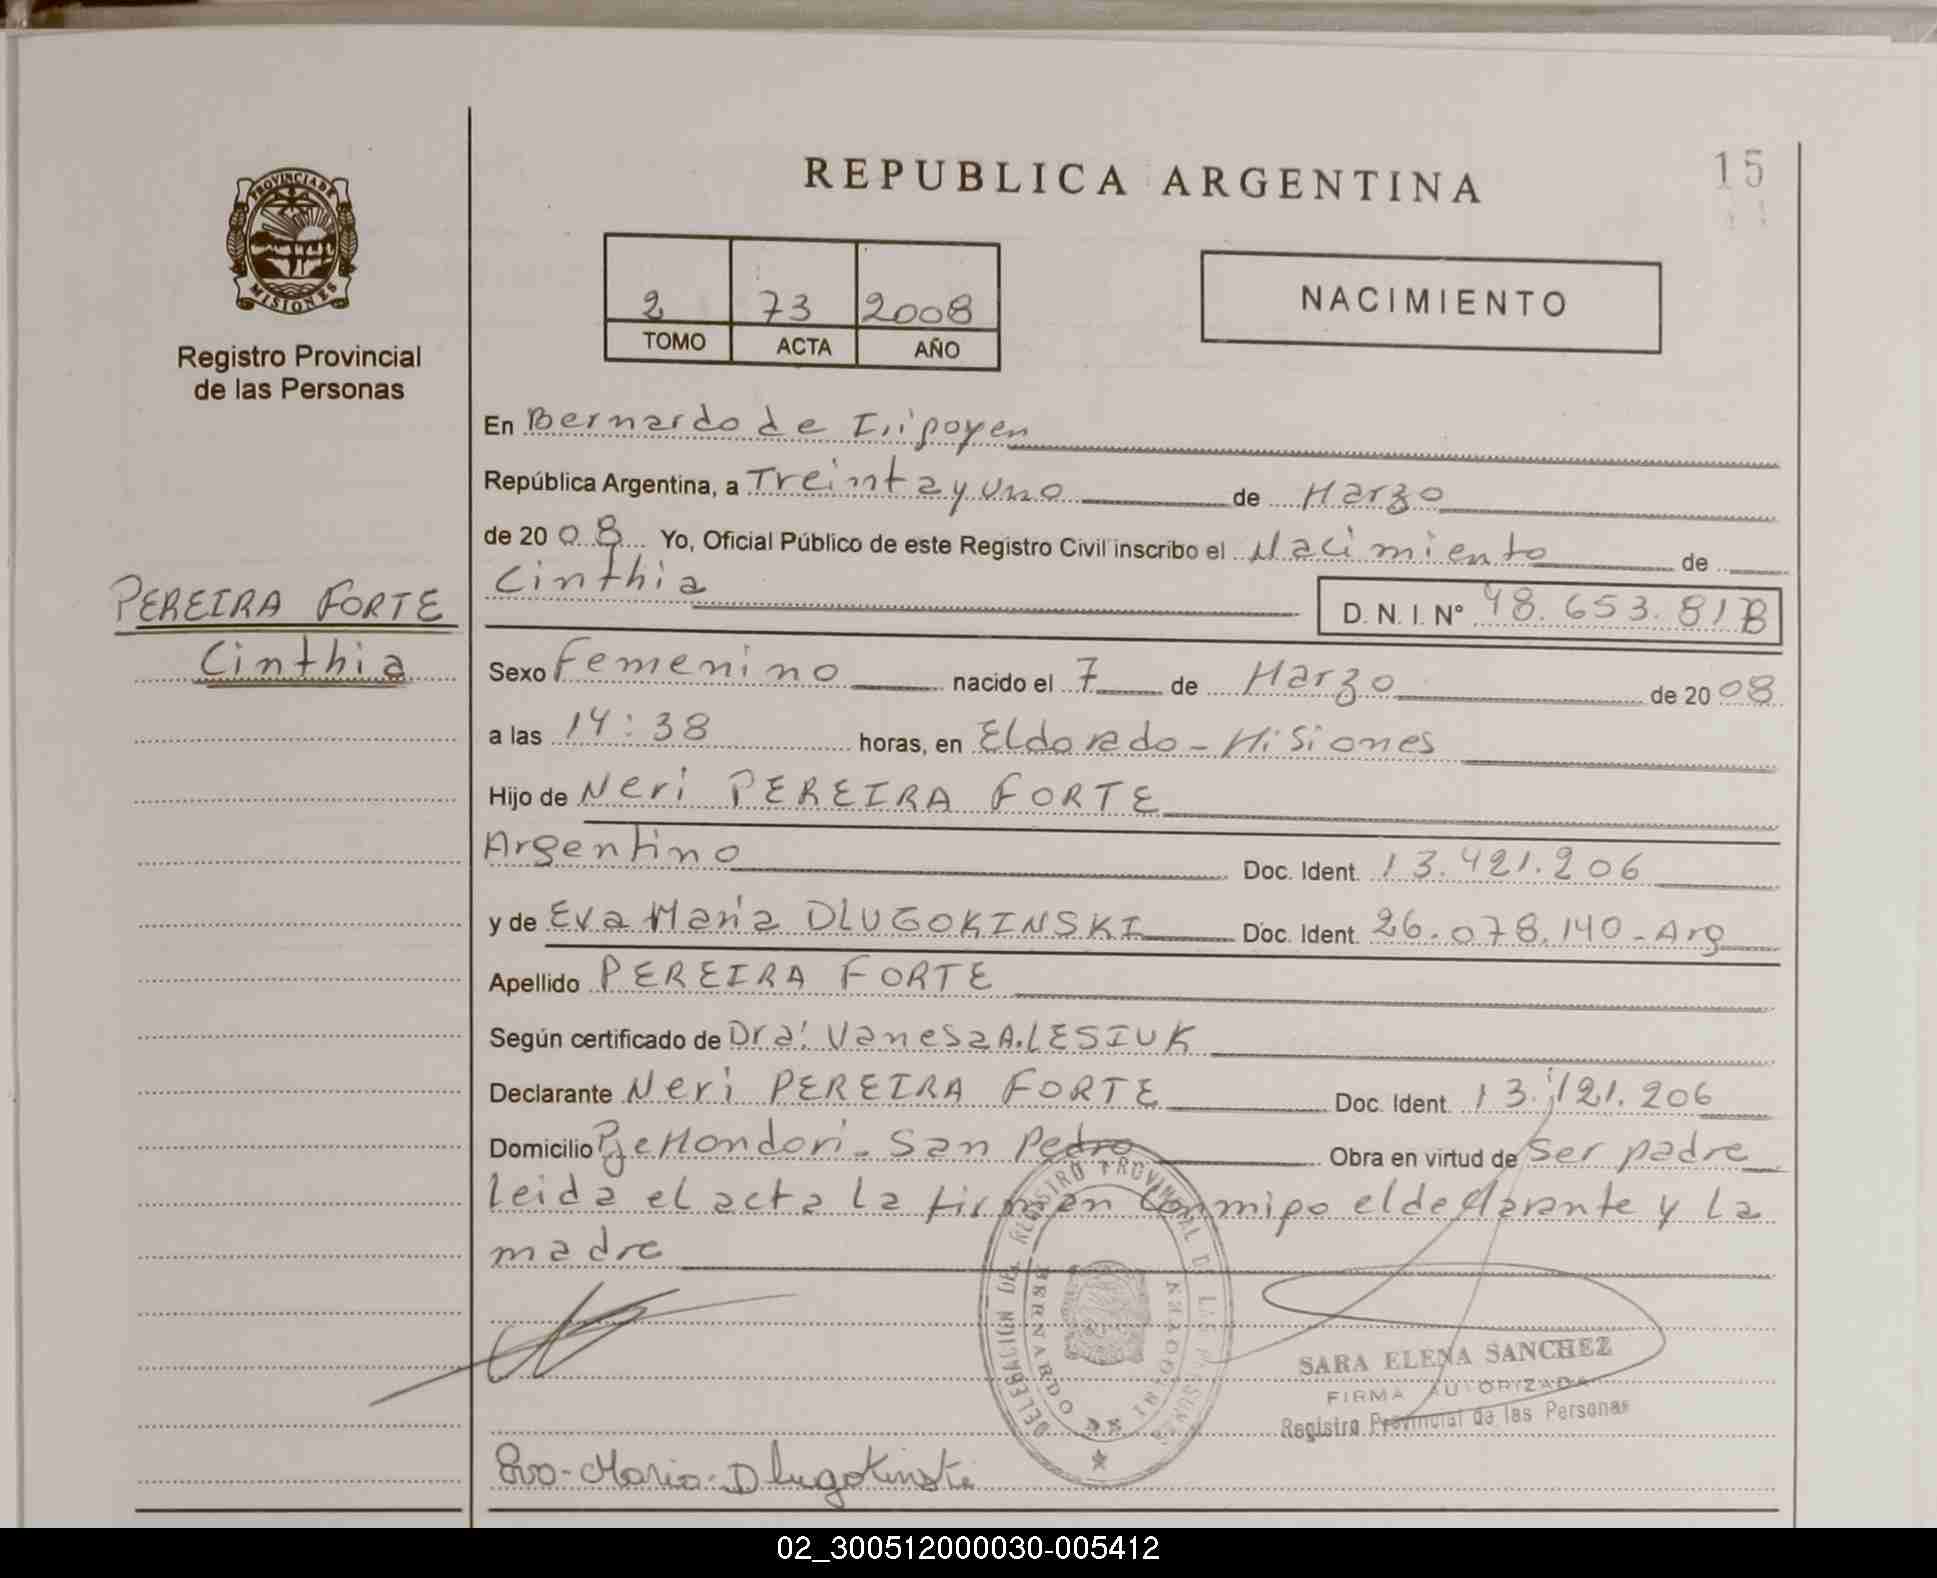 REPUBLICA ARGENTINA
15
PROVINCIA DE
MISIONES
Registro Provincial
de las Personas
2 73 2008
TOMO ACTA AÑO
NACIMIENTO
En Bernardo de Irigoyen
República Argentina, a Treinta y uno de Marzo
de 2008 Yo, Oficial Público de este Registro Civil inscribo el Nacimiento de
PEREIRA FORTE
Cinthia
Cinthia D. N. I. Nº 48.653.81
Sexo Femenino nacido el 7 de Marzo de 2008
a las 14:38 horas, en Eldorado - Misiones
Hijo de Neri PEREIRA FORTE
Argentino Doc. Ident. 13.421.206
y de Eva Maria DLUGOKINSKI Doc. Ident. 26.078.140 - Arg
Apellido PEREIRA FORTE
Según certificado de Dra: Vanesa A. LESIUK
Declarante Neri PEREIRA FORTE Doc. Ident. 13.421.206
Domicilio Pje Mondori - San Pedro Obra en virtud de ser padre
leida el acta la firman conmigo el declarante y la
madre
DELEGACION DEL REGISTRO PROVINCIAL DE LAS PERSONAS
BERNARDO DE IRIGOYEN
SARA ELENA SANCHEZ
FIRMA AUTORIZADA
Registro Provincial de las Personas
Eva - Maria - Dlugokinski
02_300512000030-005412